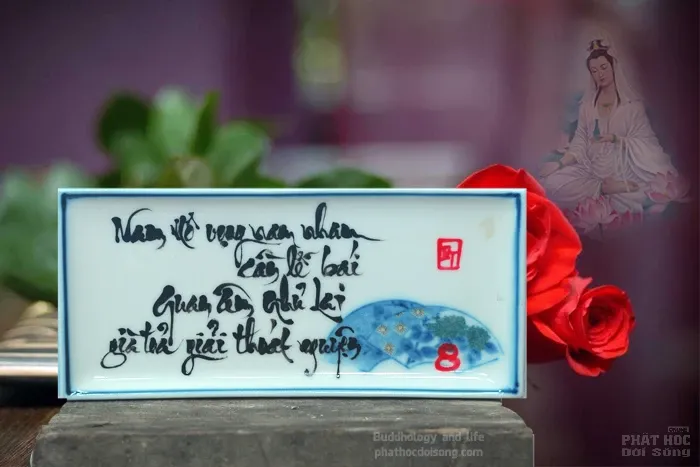 Nam mô vọng nam nham
cần lễ bái
Quan Âm Như Lai
già toả giải thoát nguyện
8
Buddhology and life
phathocdoisong.com
PHẬT HỌC
Đời Sống